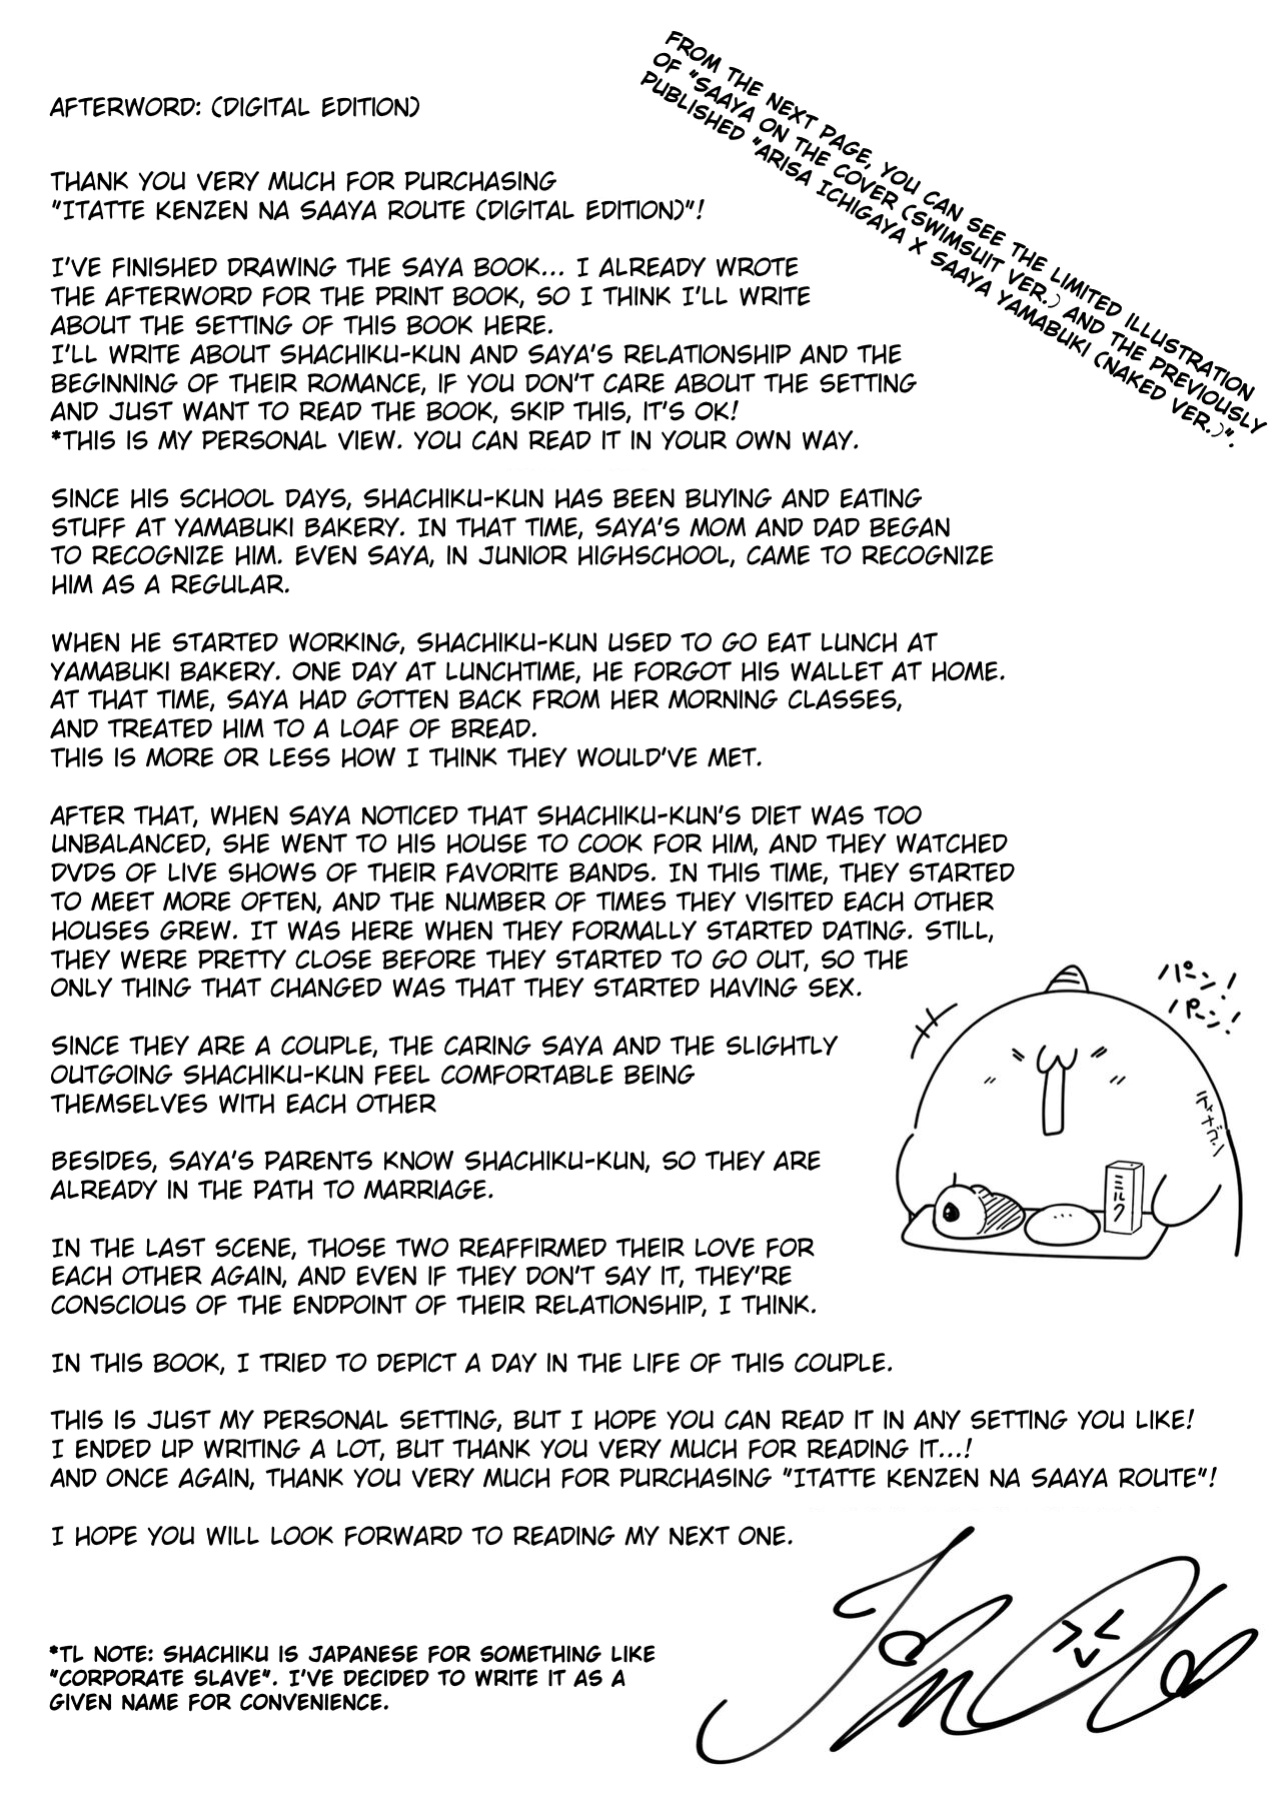 AFTERWORD: (DIGITAL EDITION)
FROM THE NEXT PAGE, YOU CAN SEE THE LIMITED ILLUSTRATION
OF "SAAYA ON THE COVER (SWIMSUIT VER.) AND THE PREVIOUSLY
PUBLISHED "ARISA ICHIGAYA X SAAYA YAMABUKI (NAKED VER.)".
THANK YOU VERY MUCH FOR PURCHASING
"ITATTE KENZEN NA SAAYA ROUTE (DIGITAL EDITION)"!
I'VE FINISHED DRAWING THE SAYA BOOK... I ALREADY WROTE
THE AFTERWORD FOR THE PRINT BOOK, SO I THINK I'LL WRITE
ABOUT THE SETTING OF THIS BOOK HERE.
I'LL WRITE ABOUT SHACHIKU-KUN AND SAYA'S RELATIONSHIP AND THE
BEGINNING OF THEIR ROMANCE, IF YOU DON'T CARE ABOUT THE SETTING
AND JUST WANT TO READ THE BOOK, SKIP THIS, IT'S OK!
*THIS IS MY PERSONAL VIEW. YOU CAN READ IT IN YOUR OWN WAY.
SINCE HIS SCHOOL DAYS, SHACHIKU-KUN HAS BEEN BUYING AND EATING
STUFF AT YAMABUKI BAKERY. IN THAT TIME, SAYA'S MOM AND DAD BEGAN
TO RECOGNIZE HIM. EVEN SAYA, IN JUNIOR HIGHSCHOOL, CAME TO RECOGNIZE
HIM AS A REGULAR.
WHEN HE STARTED WORKING, SHACHIKU-KUN USED TO GO EAT LUNCH AT
YAMABUKI BAKERY. ONE DAY AT LUNCHTIME, HE FORGOT HIS WALLET AT HOME.
AT THAT TIME, SAYA HAD GOTTEN BACK FROM HER MORNING CLASSES,
AND TREATED HIM TO A LOAF OF BREAD.
THIS IS MORE OR LESS HOW I THINK THEY WOULD'VE MET.
AFTER THAT, WHEN SAYA NOTICED THAT SHACHIKU-KUN'S DIET WAS TOO
UNBALANCED, SHE WENT TO HIS HOUSE TO COOK FOR HIM, AND THEY WATCHED
DVDS OF LIVE SHOWS OF THEIR FAVORITE BANDS. IN THIS TIME, THEY STARTED
TO MEET MORE OFTEN, AND THE NUMBER OF TIMES THEY VISITED EACH OTHER
HOUSES GREW. IT WAS HERE WHEN THEY FORMALLY STARTED DATING. STILL,
THEY WERE PRETTY CLOSE BEFORE THEY STARTED TO GO OUT, SO THE
ONLY THING THAT CHANGED WAS THAT THEY STARTED HAVING SEX.
パン!
パーン!
ミルク
SINCE THEY ARE A COUPLE, THE CARING SAYA AND THE SLIGHTLY
OUTGOING SHACHIKU-KUN FEEL COMFORTABLE BEING
THEMSELVES WITH EACH OTHER
BESIDES, SAYA'S PARENTS KNOW SHACHIKU-KUN, SO THEY ARE
ALREADY IN THE PATH TO MARRIAGE.
IN THE LAST SCENE, THOSE TWO REAFFIRMED THEIR LOVE FOR
EACH OTHER AGAIN, AND EVEN IF THEY DON'T SAY IT, THEY'RE
CONSCIOUS OF THE ENDPOINT OF THEIR RELATIONSHIP, I THINK.
IN THIS BOOK, I TRIED TO DEPICT A DAY IN THE LIFE OF THIS COUPLE.
THIS IS JUST MY PERSONAL SETTING, BUT I HOPE YOU CAN READ IT IN ANY SETTING YOU LIKE!
I ENDED UP WRITING A LOT, BUT THANK YOU VERY MUCH FOR READING IT...!
AND ONCE AGAIN, THANK YOU VERY MUCH FOR PURCHASING "ITATTE KENZEN NA SAAYA ROUTE"!
I HOPE YOU WILL LOOK FORWARD TO READING MY NEXT ONE.
*TL NOTE: SHACHIKU IS JAPANESE FOR SOMETHING LIKE
"CORPORATE SLAVE". I'VE DECIDED TO WRITE IT AS A
GIVEN NAME FOR CONVENIENCE.